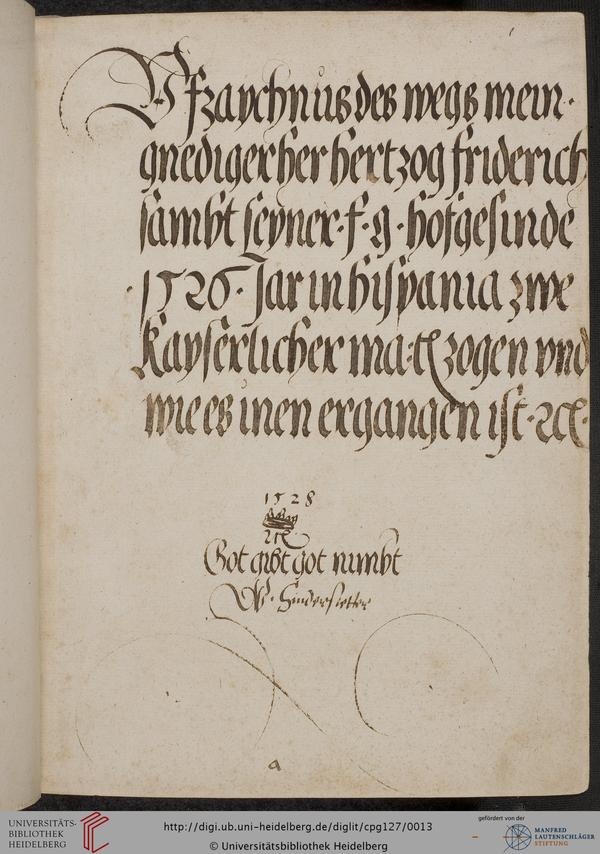 Vfzaychnus des wegs mein·
gnediger her hertzog friderich
sambt seyner· f· g· hofgesinde
·1526· Jar in hispania zwe
Kayserlicher ma:tt zogen vnd
wie es inen ergangen ist· ꝛcꝛ·
1528
Got gibt got nimbt
W· Hindersietter
a
UNIVERSITÄTS-
BIBLIOTHEK
HEIDELBERG
http://digi.ub.uni-heidelberg.de/diglit/cpg127/0013
© Universitätsbibliothek Heidelberg
gefördert von der
MANFRED
LAUTENSCHLÄGER
STIFTUNG